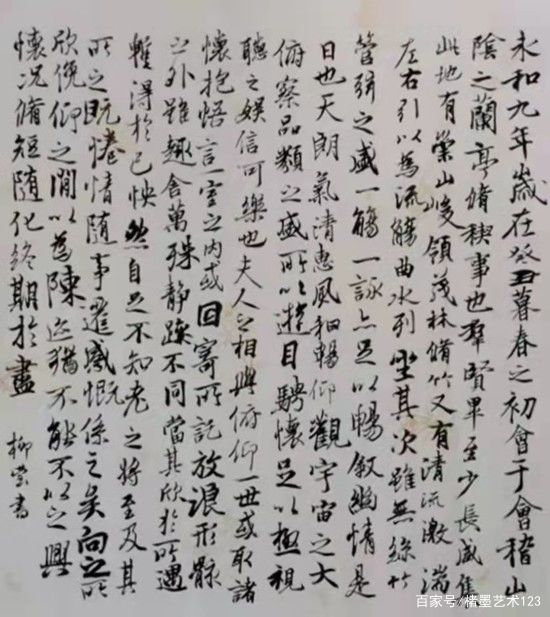 永和九年歲在癸丑暮春之初會于會稽山
陰之蘭亭脩稧事也羣賢畢至少長咸集
此地有崇山峻領茂林脩竹又有清流激湍
左右引以為流觴曲水列坐其次雖無絲竹
管弦之盛一觴一詠亦足以暢叙幽情是
日也天朗氣清惠風和暢仰觀宇宙之大
俯察品類之盛所以遊目騁懷足以極視
聽之娛信可樂也夫人之相與俯仰一世或取諸
懷抱悟言一室之內或因寄所託放浪形骸
之外雖趣舍萬殊靜躁不同當其欣於所遇
暫得於己怏然自足不知老之將至及其
所之既惓情隨事遷感慨係之矣向之所
欣俛仰之間以為陳迹猶不能不以之興
懷況脩短隨化終期於盡
柳崇書
百家号/楮墨艺术123